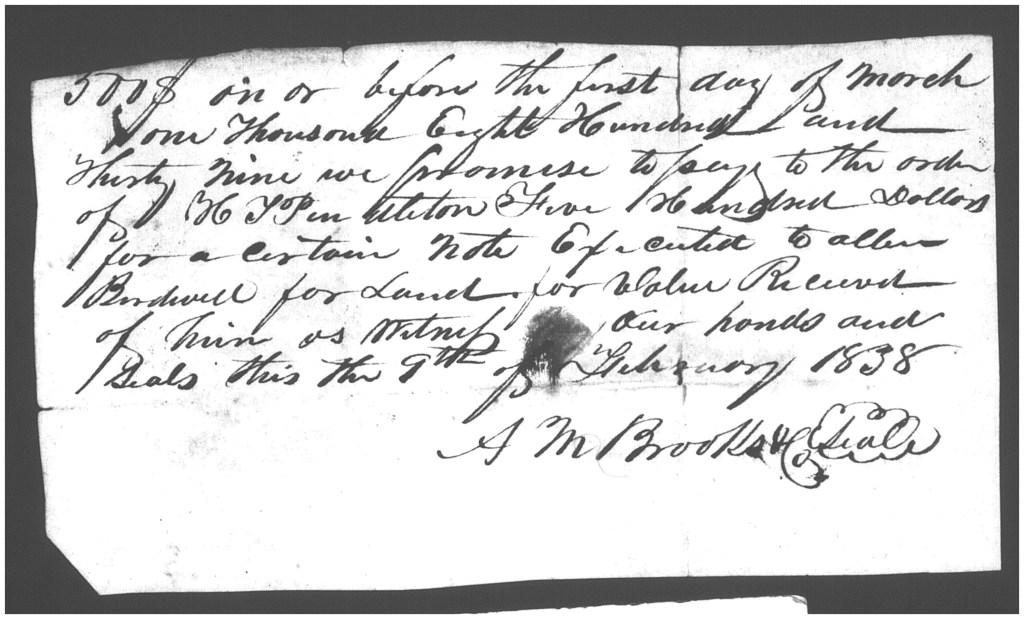 500$ on or before the first day of March
one Thousand Eight Hundred and
Thirty Nine we promise to pay to the order
of H T Pendleton Five Hundred Dollars
for a certain Note Executed to allen
Birdwell for Land for Value Received
of him as Witness Our hands and
Seals this the 9th of February 1838
A M Brooks & Co Seale